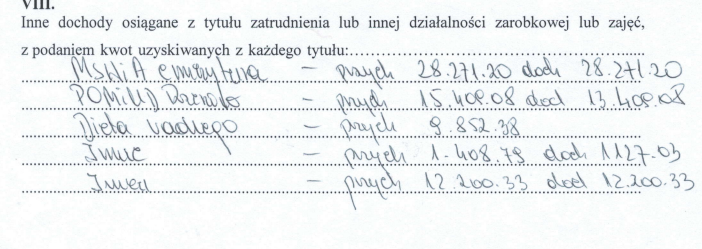 VIII.
Inne dochody osiągane z tytułu zatrudnienia lub innej działalności zarobkowej lub zajęć,
z podaniem kwot uzyskiwanych z każdego tytułu:
MSWiA emerytura – przych 28.271.20 doch 28.271.20
– przych 15.409.08 doch 13.409.08
Dieta radnego – przych 9.852.38
Inne – przych 1.408.79 doch 1127.03
Inne – przych 12.200.33 doch 12.200.33